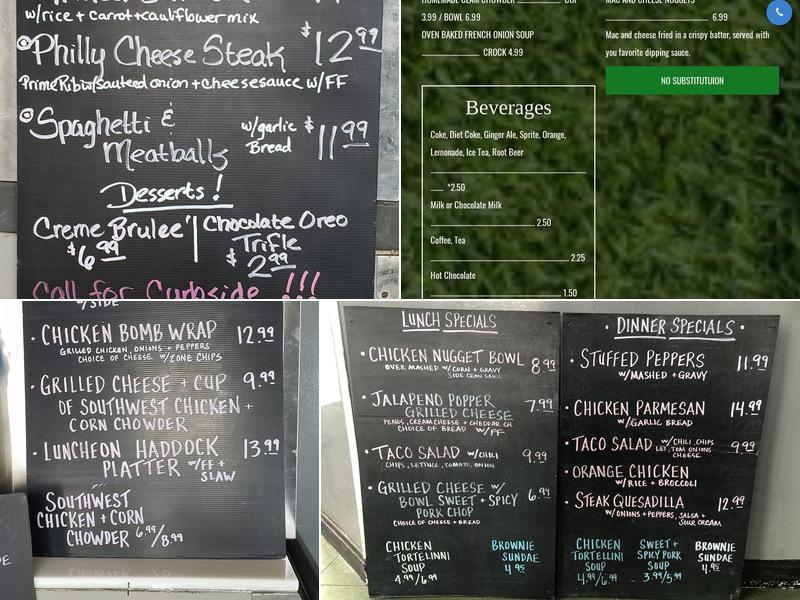 w/rice + carrot+cauliflower mix
Philly Cheese Steak $12.99
PrimeRib w/sauteed onion + cheesesauce w/FF
Spaghetti &
Meatballs
w/garlic
Bread
$11.99
Desserts!
Creme Brulee' | Chocolate Oreo
Trifle
$6.99
$2.99
Call for Curbside !!!
HOMEMADE CLAM CHOWDER CUP
3.99 / BOWL 6.99
OVEN BAKED FRENCH ONION SOUP
CROCK 4.99
MAC AND CHEESE NUGGETS
6.99
Mac and cheese fried in a crispy batter, served with
you favorite dipping sauce.
NO SUBSTITUTUION
Beverages
Coke, Diet Coke, Ginger Ale, Sprite, Orange,
Lemonade, Ice Tea, Root Beer
*2.50
Milk or Chocolate Milk
2.50
Coffee, Tea
2.25
Hot Chocolate
1.50
w/SIDE
• CHICKEN BOMB WRAP 12.99
GRILLED CHICKEN, ONIONS + PEPPERS
CHOICE OF CHEESE w/ZONE CHIPS
• GRILLED CHEESE + CUP 9.99
OF SOUTHWEST CHICKEN +
CORN CHOWDER
• LUNCHEON HADDOCK 13.99
PLATTER w/FF +
SLAW
SOUTHWEST
CHICKEN + CORN
CHOWDER 6.99/8.99
LUNCH SPECIALS
• CHICKEN NUGGET BOWL 8.99
OVER MASHED w/CORN + GRAVY
SIDE CRAN SAUCE
• JALAPENO POPPER 7.99
GRILLED CHEESE
PENOS, CREAM CHEESE + CHEDDAR CH.
CHOICE OF BREAD w/FF
• TACO SALAD w/CHILI 9.99
CHIPS, LETTUCE, TOMATO, ONION
• GRILLED CHEESE w/ 6.99
BOWL SWEET + SPICY
PORK CHOP
CHOICE OF CHEESE + BREAD
CHICKEN
TORTELINNI
SOUP
4.99/6.99
BROWNIE
SUNDAE
4.95
• DINNER SPECIALS •
• STUFFED PEPPERS 11.99
w/MASHED + GRAVY
• CHICKEN PARMESAN 14.99
w/GARLIC BREAD
• TACO SALAD w/CHILI, CHIPS 9.99
LET, TOM ONIONS
CHEESE
• ORANGE CHICKEN
w/RICE + BROCCOLI
• STEAK QUESADILLA 12.99
w/ONIONS + PEPPERS, SALSA +
SOUR CREAM
CHICKEN
TORTELLINI
SOUP
4.99/6.99
SWEET +
SPICY PORK
SOUP
3.99/5.99
BROWNIE
SUNDAE
4.95